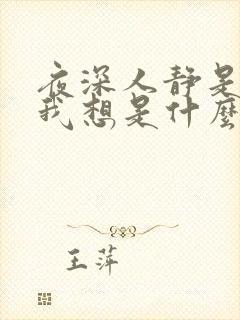 夜深人静是
我想是什麼
王萍